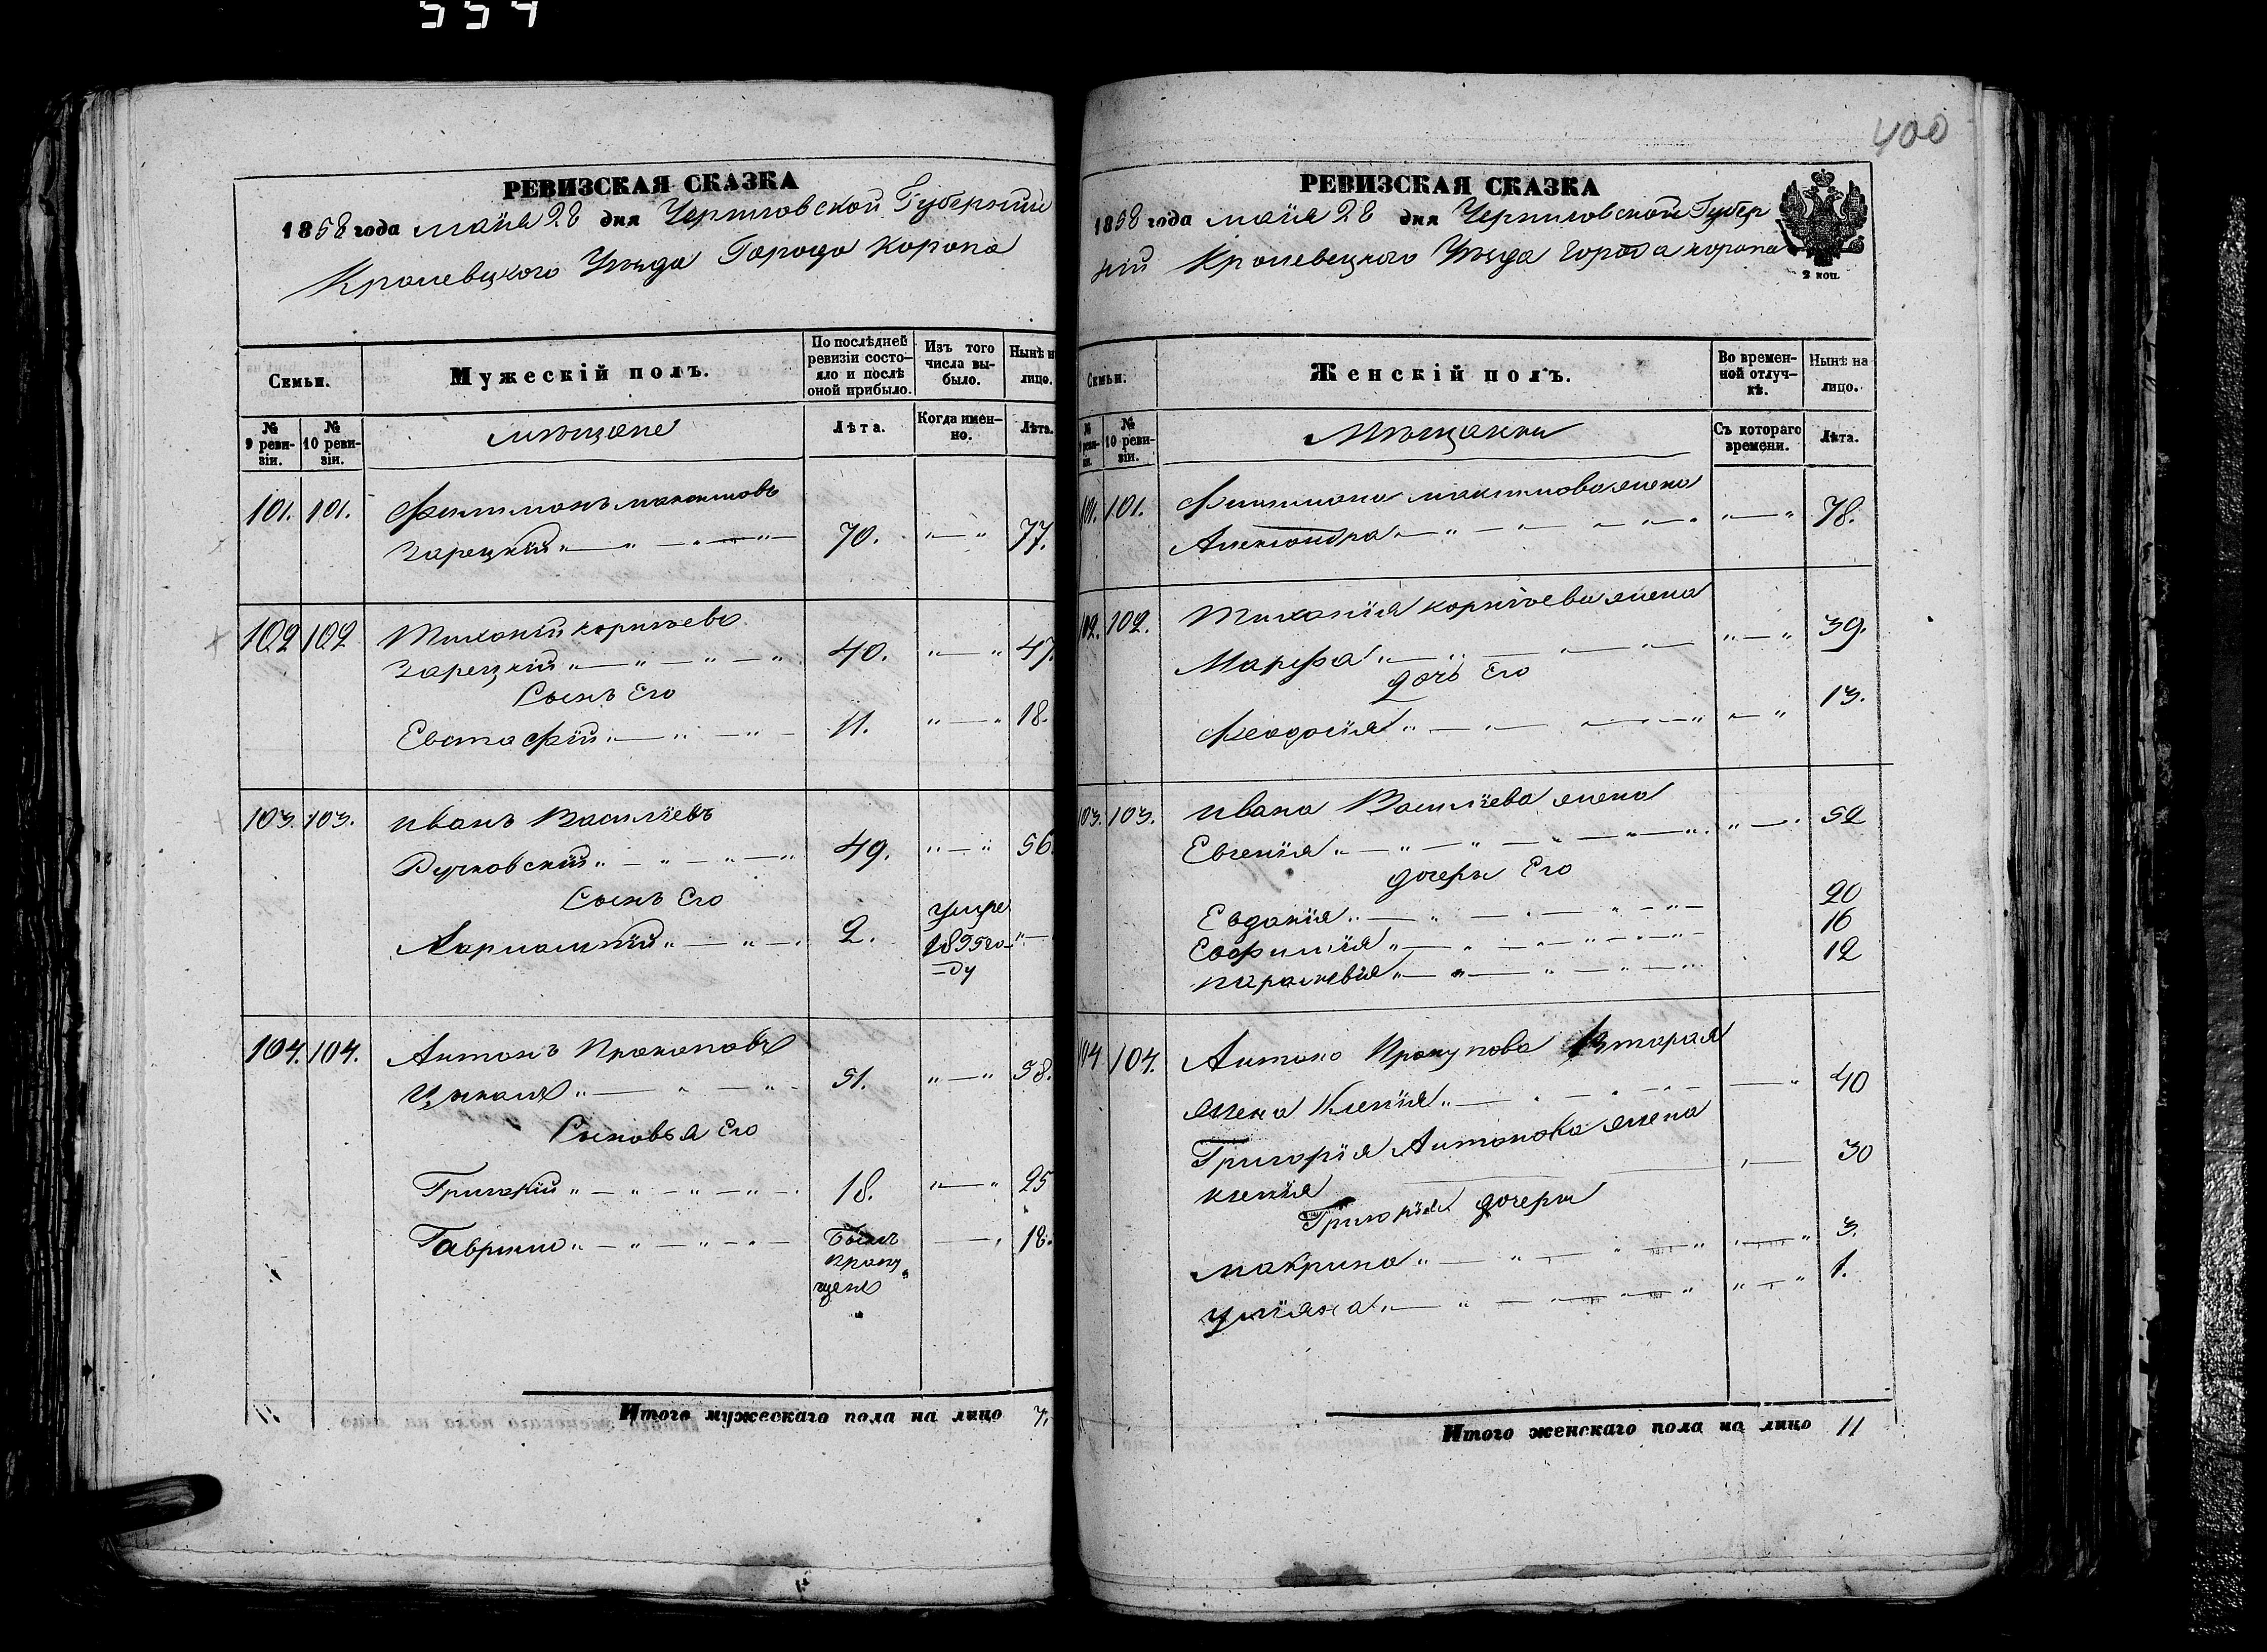 554
РЕВИЗСКАЯ СКАЗКА
1858 года маія 28 дня Черниговской Губерніи
Кролевецкого Уѣзда Города Коропа
Семьи.
Мужескій полъ.
По послѣдней ревизіи состояло и послѣ оной прибыло.
Изъ того числа выбыло.
Нынѣ н
лицо.
№ 9 ревизіи.
№ 10 ревизіи.
мѣщане
Лѣта.
Когда именно.
Лѣта.
101. 101. Филимонъ максимовъ
Зарецкій 70. 77.
102 102 Тихоній корніевъ
Зарецкій 40. 47.
Сынъ Его
Евстафій 11. 18.
103. 103. иванъ Василіевъ
Ручковскій 49. 56.
Сынъ Его
2. умре
1855 го-
ду
104. 104. Антонъ Прокоповъ
51. 58.
Сыновья Его
Григорій 18. 25
Гавріил Былъ 18.
пропу
щенъ
Итого мужескаго пола на лицо 7.
400
РЕВИЗСКАЯ СКАЗКА
1858 года маія 28 дня Черниговской Губер
ніи Кролевецкого Уѣзда города коропа
2 коп.
Семьи.
Женскій полъ.
Во временной отлучкѣ.
Нынѣ на лицо.
№ 9 ревизіи.
№ 10 ревизіи.
Мѣщанки
Съ котораго времени.
Лѣта.
101. 101. Филимона максимова жена
Александра 78.
102. 102. Тихонія корніева жена
Марфа 39.
дочь Его
Феодосія 13.
103. 103. ивана Василіева жена
Евгенія 52
дочери Его
Евдокія 20
Евфимія 16
параскевія 12
104 104. Антона Прокупова Вторая
жена Ксенія 40
Григорія Антонова жена
ксенія 30
Григорія дочери
макрина 3.
уліяна 1.
Итого женскаго пола на лицо 11